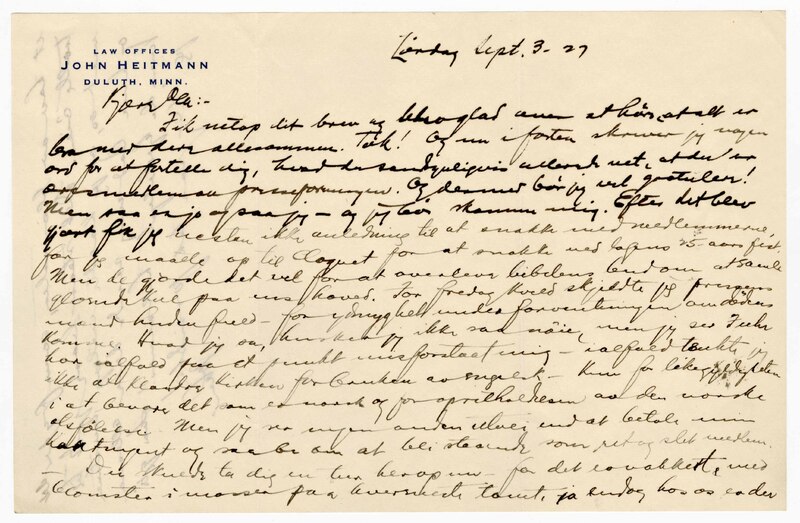 LAW OFFICES
JOHN HEITMANN
DULUTH, MINN.
Lördag Sept. 3 - 27
Kjære Ola:-
Fik netop dit brev og blir glad over at höre, at alt er
bra med dere allesammen. Tak! Og nu i farten skriver jeg nogen
ord for at fortelle dig, hvad du sandsynligvis allerede vet, at du er
æresmedlem av presseforeningen. Og dermed bör jeg vel gratulere!
Men saa er jo ogsaa jeg - og jeg bör skamme mig. Efter det blev
gjort fik jeg nesten ikke anledning til at snakke med medlemmerne,
for jeg maatte op til Cloquet for at snakke ved logens 25 aars fest.
Men de gjorde det vel for at overleve bibelens bud om at samle
gloende kul paa ens hoved. For fredag kveld skjeldte jeg pressens
mænd huden full - for ydmyghet under forventningen om dödens
komme. Hvad jeg sa, husker jeg ikke saa nöie, men jeg ser Fuhr
har ialfald paa et punkt misforstaat mig - ialfald tænkte jeg
ikke at klandre kirken for bruken av engelsk - kun for likegyldigheten
i at bevare det som er norsk og for opretholdelsen av den norske
Men jeg sa ingen anden utvei end at betale min
kontingent og saa be om at bli staaende som ret og slet medlem.
Du skulde ta dig en tur herop nu - for det er vakkert, med
blomster i masser paa hver eneste tomt, ja endog hos os er der